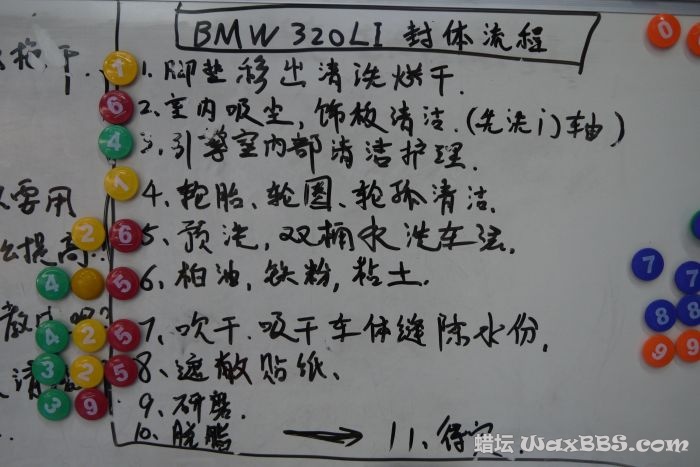 BMW 320LI 封体流程
1、脚垫移出清洗烘干.
2、室内吸尘,饰板清洁.(先洗门轴)
3、引擎室内部清洁护理.
4、轮胎、轮圈、轮弧清洁.
5、预洗,双桶水洗车法.
6、柏油,铁粉,粘土.
7、吹干、吸干车体缝隙水份,
8、遮蔽贴纸、
9、研磨.
10、脱脂 → 11、
要用
提高
1
6
4
1
2 6
4 5
4 2 5
3 2 5
3 9
0
7
7
8
8
9 9
蜡坛 WaxBBS.com